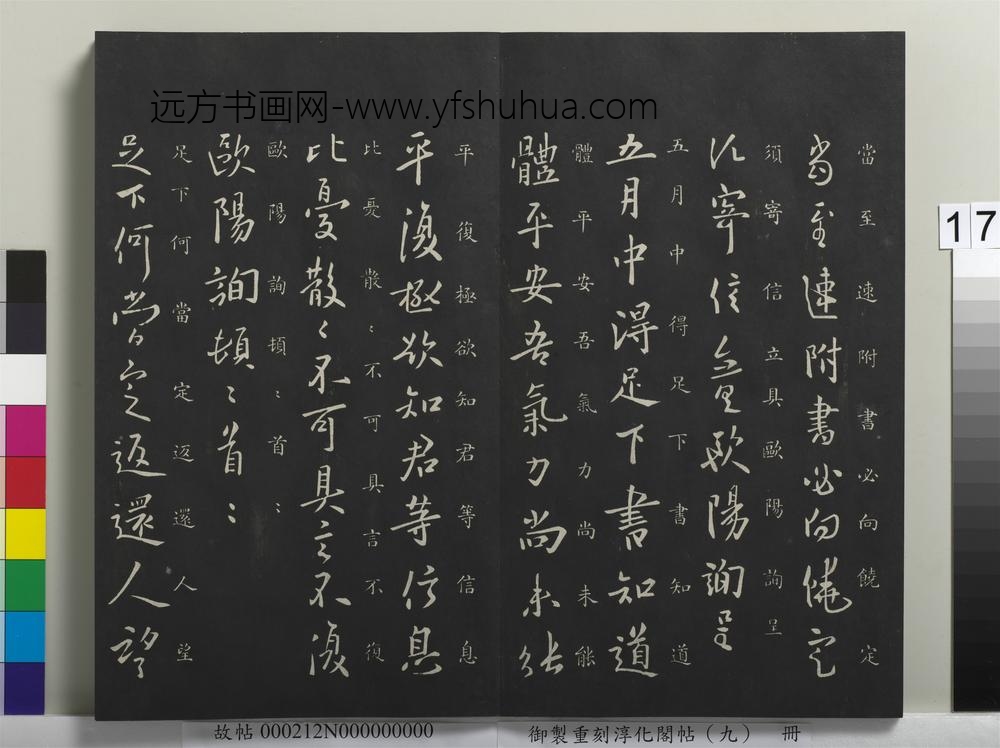 远方书画网-www.yfshuhua.com
當至速附書必向饒定
當至速附書必向饒定
須寄信立具歐陽詢呈
須寄信立具歐陽詢呈
五月中得足下書知道
五月中得足下書知道
體平安吾氣力尚未能
體平安吾氣力尚未能
平復極欲知君等信息
平復極欲知君等信息
比憂散〻不可具言不復
比憂散〻不可具言不復
歐陽詢頓〻首〻
歐陽詢頓〻首〻
足下何當定返還人望
足下何當定返還人望
17
故帖 000212N000000000
御製重刻淳化閣帖（九） 冊